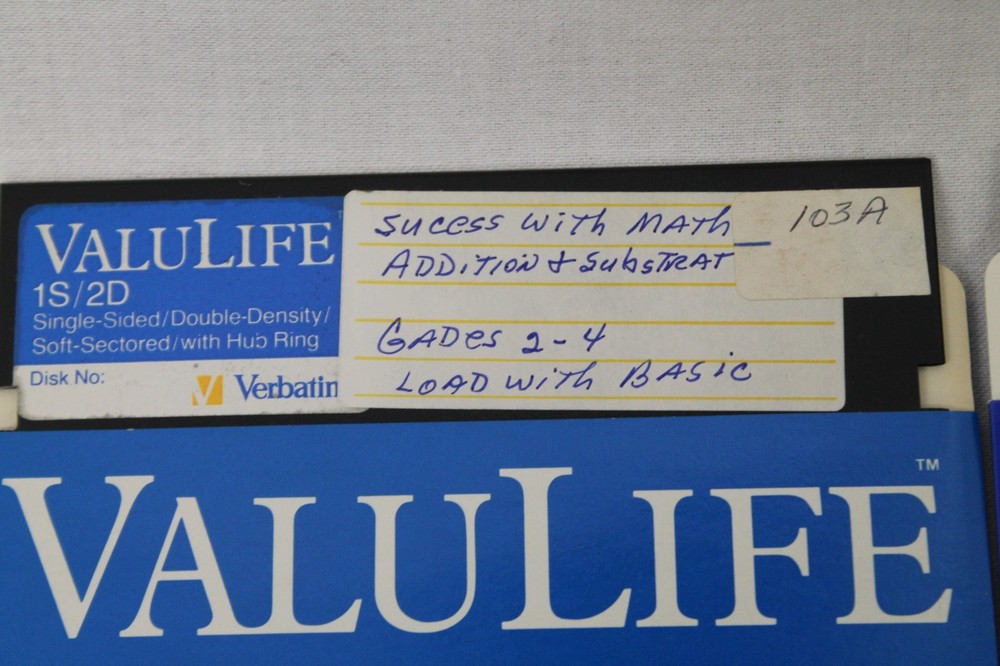 VALULIFE
1S/2D
Single-Sided/Double-Density/
Soft-Sectored/with Hub Ring
Disk No:
Verbatim
SUCESS WITH MATH
ADDITION & SUBSTRAT
GADES 2-4
LOAD WITH BASIC
103A
VALULIFE™